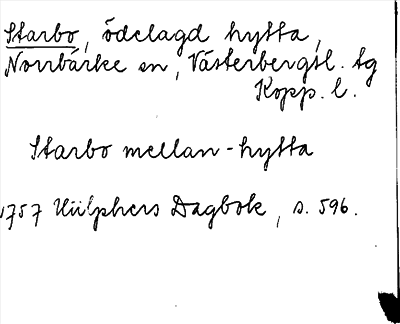 Starbo, ödelagd hytta,
Norrbärke sn, Västerbergsl. tg
Kopp. l.
Starbo mellan-hytta
1757 Hülphers Dagbok, s. 596.